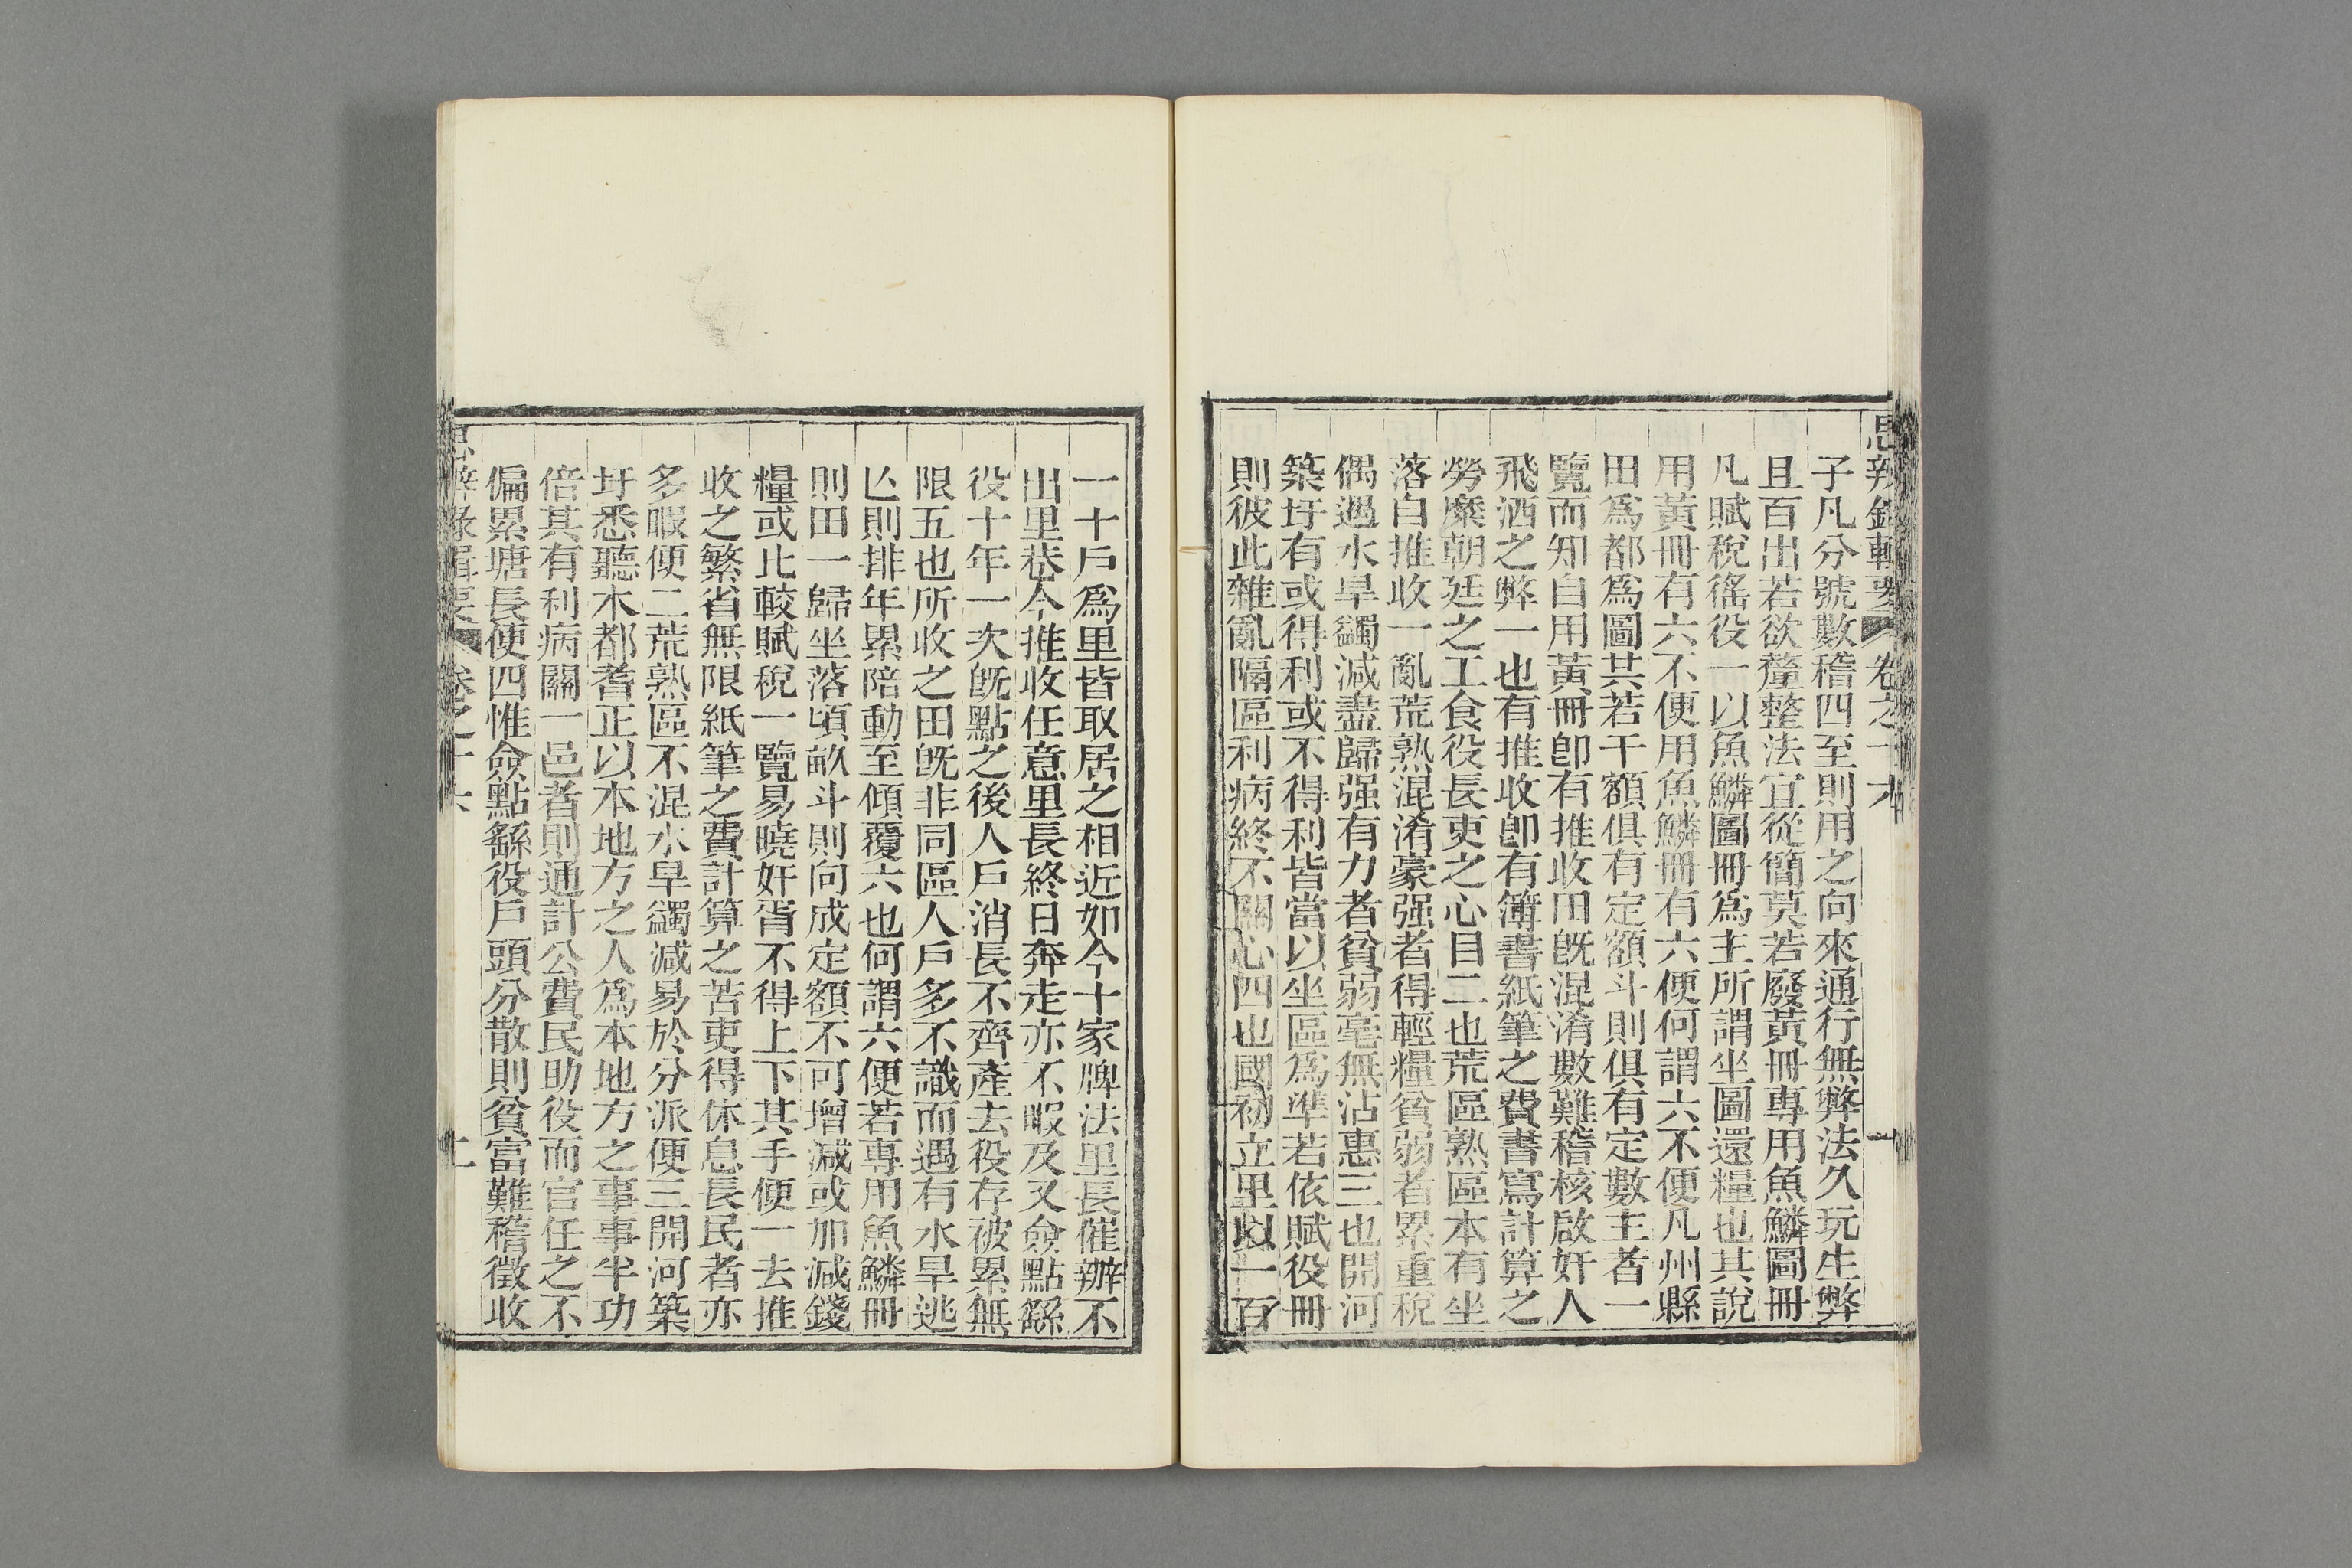 思辨錄輯要 卷之十六
子凡分號數稽四至則用之向來通行無弊法久玩生弊
且百出若欲釐整法宜從簡莫若廢黃冊專用魚鱗圖冊
凡賦稅徭役一以魚鱗圖冊爲主所謂坐圖還糧也其說
用黃冊有六不便用魚鱗冊有六便何謂六不便凡州縣
田爲都爲圖共若干額俱有定額斗則俱有定數主者一
覽而知自用黃冊卽有推收田旣混淆數難稽核啟奸人
飛洒之弊一也有推收卽有簿書紙筆之費書寫計算之
勞糜朝廷之工食役長吏之心目二也荒區熟區本有坐
落自推收一亂荒熟混淆豪强者得輕糧貧弱者累重稅
偶遇水旱蠲減盡歸强有力者貧弱毫無沾惠三也開河
築圩有或得利或不得利皆當以坐區爲準若依賦役冊
則彼此雜亂隔區利病終不關心四也國初立里以一百
一十戶爲里皆取居之相近如今十家牌法里長催辦不
出里巷今推收任意里長終日奔走亦不暇及又僉點繇
役十年一次旣點之後人戶消長不齊產去役存被累無
限五也所收之田旣非同區人戶多不識而遇有水旱逃
亾則排年累陪動至傾覆六也何謂六便若專用魚鱗冊
則田一歸坐落頃畝斗則向成定額不可增減或加減錢
糧或比較賦稅一覽易曉奸胥不得上下其手便一去推
收之繁省無限紙筆之費計算之苦吏得休息長民者亦
多暇便二荒熟區不混水旱蠲減易於分派便三開河築
圩悉聽本都耆正以本地方之人爲本地方之事事半功
倍其有利病關一邑者則通計公費民助役而官任之不
偏累塘長便四惟僉點繇役戶頭分散則貧富難稽徵收
思辨錄輯要 卷之十六